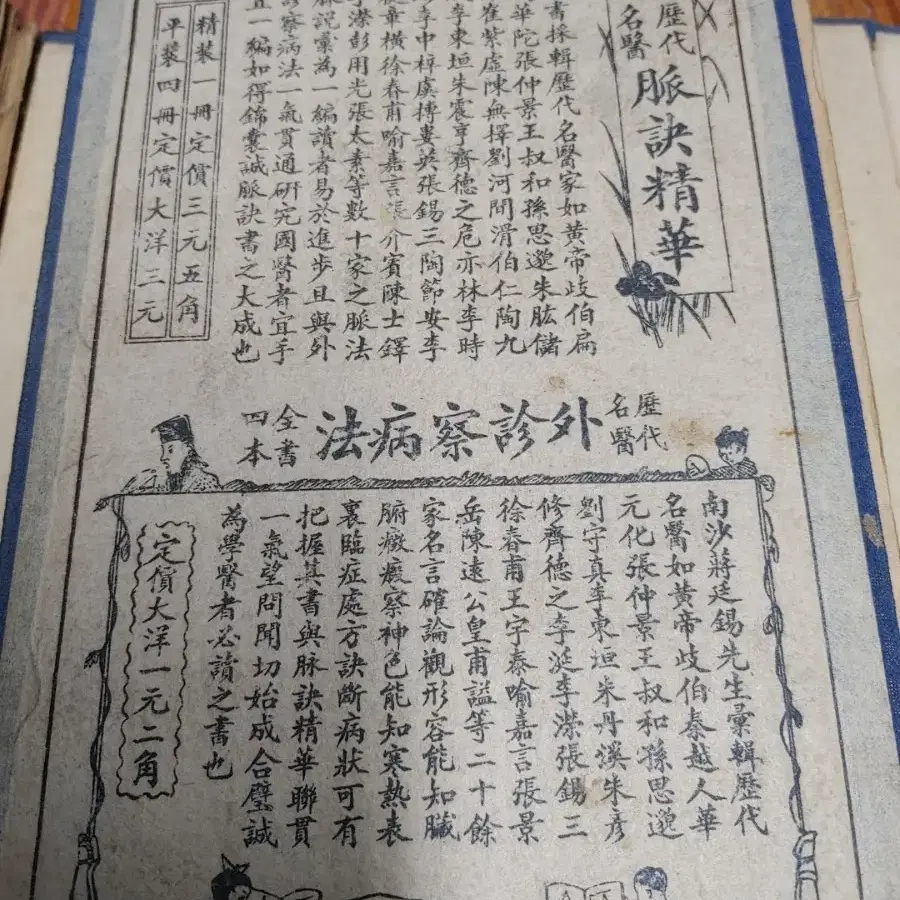 歷代
名醫
脈訣精華
書採輯歷代名醫家如黃帝岐伯扁
華陀張仲景王叔和孫思邈朱肱儲
崔紫虛陳無擇劉河間滑伯仁陶九
李東垣朱震亨齊德之危亦林李時
李中梓虞摶婁英張錫三陶節安李
橫徐春甫喻嘉言張介賓陳士鐸
濚彭用光張太素等數十家之脈法
説彙為一編讀者易於進步且與外
察病法一氣貫通研究國醫者宜手
一編如得錦囊誠脈訣書之大成也
精裝一冊定價三元五角
平裝四冊定價大洋三元
歷代
名醫
外診察病法
全書
四本
南沙蔣廷錫先生彙輯歷代
名醫如黃帝岐伯秦越人華
元化張仲景王叔和孫思邈
劉守真李東垣朱丹溪朱彥
修齊德之李涎李濚張錫三
徐春甫王宇泰喻嘉言張景
岳陳遠公皇甫謐等二十餘
家名言確論觀形容能知臟
腑癥瘕察神色能知寒熱表
裏臨症處方訣斷病狀可有
把握其書與脉訣精華聯貫
一氣望問聞切始成合璧誠
為學醫者必讀之書也
定價大洋一元二角